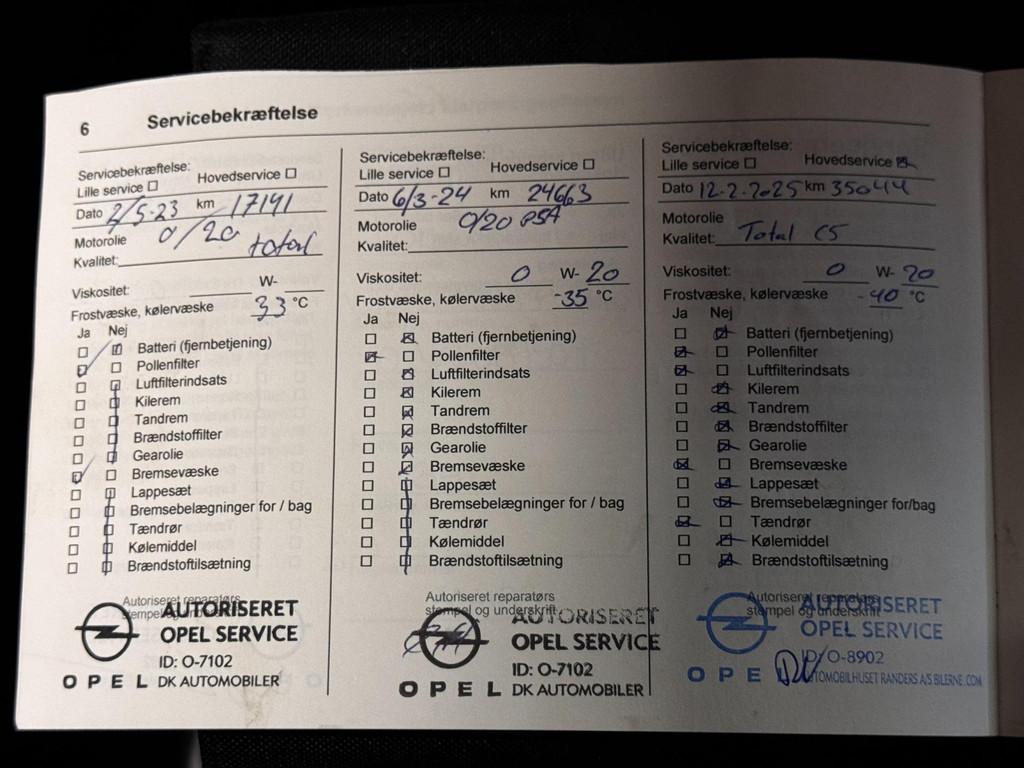 6 Servicebekræftelse
Servicebekræftelse:
Lille service ☐ Hovedservice ☐
Dato 2/5-23 km 17141
Motorolie 0/20 total
Kvalitet:
Viskositet: W-
Frostvæske, kølervæske 33 °C
Ja Nej
Batteri (fjernbetjening)
Pollenfilter
Luftfilterindsats
Kilerem
Tandrem
Brændstoffilter
Gearolie
Bremsevæske
Lappesæt
Bremsebelægninger for / bag
Tændrør
Kølemiddel
Brændstoftilsætning
Autoriseret reparatørs
stempel og
AUTORISERET
OPEL SERVICE
ID: O-7102
OPEL DK AUTOMOBILER
Servicebekræftelse:
Lille service ☐ Hovedservice ☐
Dato 6/3-24 km 24663
Motorolie 0/20 PSA
Kvalitet:
Viskositet: 0 W- 20
Frostvæske, kølervæske -35 °C
Ja Nej
Batteri (fjernbetjening)
Pollenfilter
Luftfilterindsats
Kilerem
Tandrem
Brændstoffilter
Gearolie
Bremsevæske
Lappesæt
Bremsebelægninger for / bag
Tændrør
Kølemiddel
Brændstoftilsætning
Autoriseret reparatørs
stempel og underskrift
AUTORISERET
OPEL SERVICE
ID: O-7102
OPEL DK AUTOMOBILER
Servicebekræftelse:
Lille service ☐ Hovedservice ☒
Dato 12-2-2025 km 35044
Motorolie
Kvalitet: Total C5
Viskositet: 0 W- 20
Frostvæske, kølervæske -40 °C
Ja Nej
Batteri (fjernbetjening)
Pollenfilter
Luftfilterindsats
Kilerem
Tandrem
Brændstoffilter
Gearolie
Bremsevæske
Lappesæt
Bremsebelægninger for/bag
Tændrør
Kølemiddel
Brændstoftilsætning
Autoriseret reparatørs
stempel og underskrift
AUTORISERET
OPEL SERVICE
ID: O-8902
OPEL AUTOMOBILHUSET RANDERS A/S BILERNE.COM